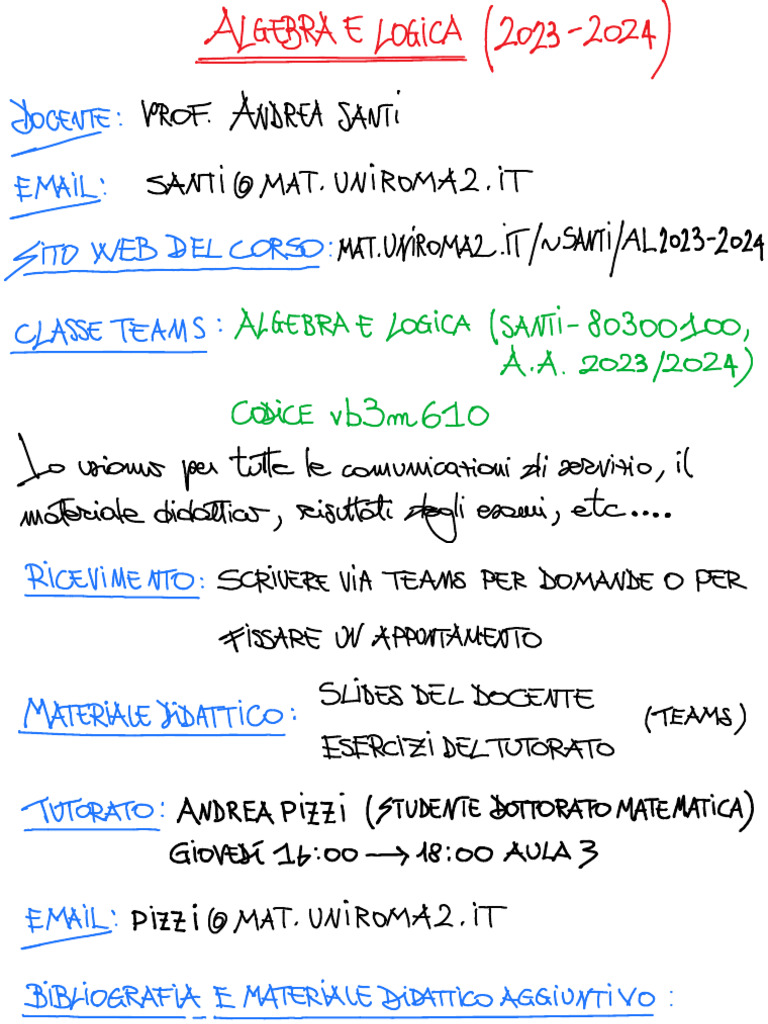 ALGEBRA E LOGICA (2023-2024)
DOCENTE: PROF. ANDREA SANTI
EMAIL: SANTI@MAT.UNIROMA2.IT
SITO WEB DEL CORSO: MAT.UNIROMA2.IT/~SANTI/AL2023-2024
CLASSE TEAMS: ALGEBRA E LOGICA (SANTI-80300100,
A.A. 2023/2024)
CODICE vb3m610
Lo usiamo per tutte le comunicazioni di servizio, il
materiale didattico, risultati degli esami, etc....
RICEVIMENTO: SCRIVERE VIA TEAMS PER DOMANDE O PER
FISSARE UN APPUNTAMENTO
MATERIALE DIDATTICO: SLIDES DEL DOCENTE (TEAMS)
ESERCIZI DEL TUTORATO
TUTORATO: ANDREA PIZZI (STUDENTE DOTTORATO MATEMATICA)
GIOVEDÍ 16:00 → 18:00 AULA 3
EMAIL: PIZZI@MAT.UNIROMA2.IT
BIBLIOGRAFIA E MATERIALE DIDATTICO AGGIUNTIVO: